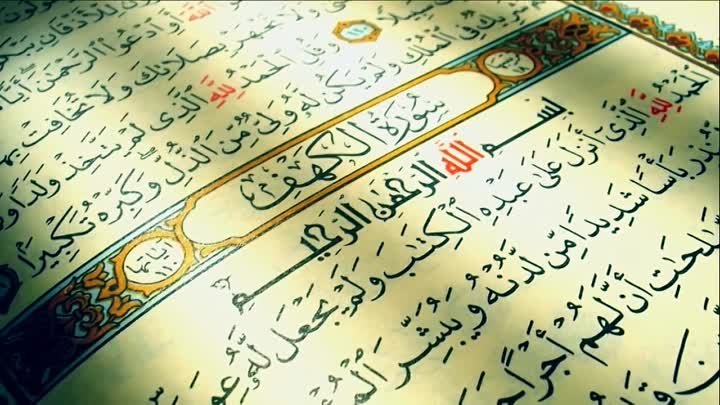 أَوِ ادْعُوا الرَّحْمَٰنَ أَيًّا
وَلَا تَجْهَرْ بِصَلَاتِكَ وَلَا تُخَافِتْ بِهَا
وَقُلِ الْحَمْدُ لِلَّهِ الَّذِي لَمْ يَتَّخِذْ وَلَدًا
شَرِيكٌ فِي الْمُلْكِ وَلَمْ يَكُنْ لَهُ وَلِيٌّ مِّنَ الذُّلِّ وَكَبِّرْهُ تَكْبِيرًا
سُورَةُ الْكَهْفِ
بِسْمِ اللَّهِ الرَّحْمَٰنِ الرَّحِيمِ
الْحَمْدُ لِلَّهِ الَّذِي أَنْزَلَ عَلَىٰ عَبْدِهِ الْكِتَابَ وَلَمْ يَجْعَلْ لَهُ
بَأْسًا شَدِيدًا مِّن لَّدُنْهُ وَيُبَشِّرَ
أَنَّ لَهُمْ أَجْرًا